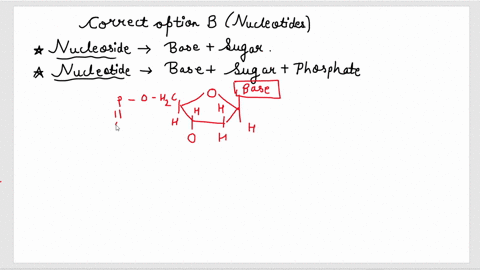 Correct option B (Nucleotides)
★ Nucleoside → Base + Sugar.
★ Nucleotide → Base + Sugar + Phosphate
O Base
P - O - H₂C
H H H
O H H